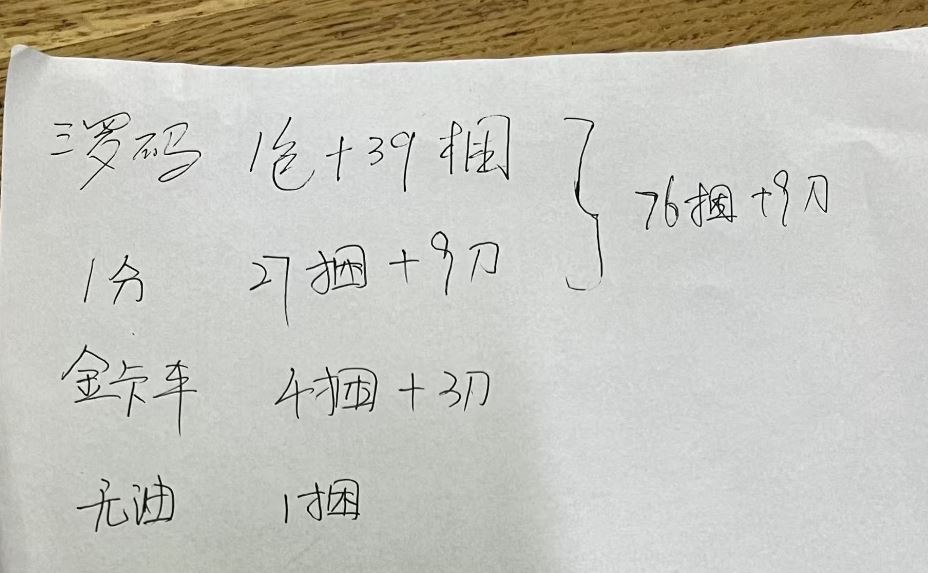 三罗码 1包+39捆
76捆+9刀
1分 27捆+9刀
金卡车 4捆+3刀
无油 1捆